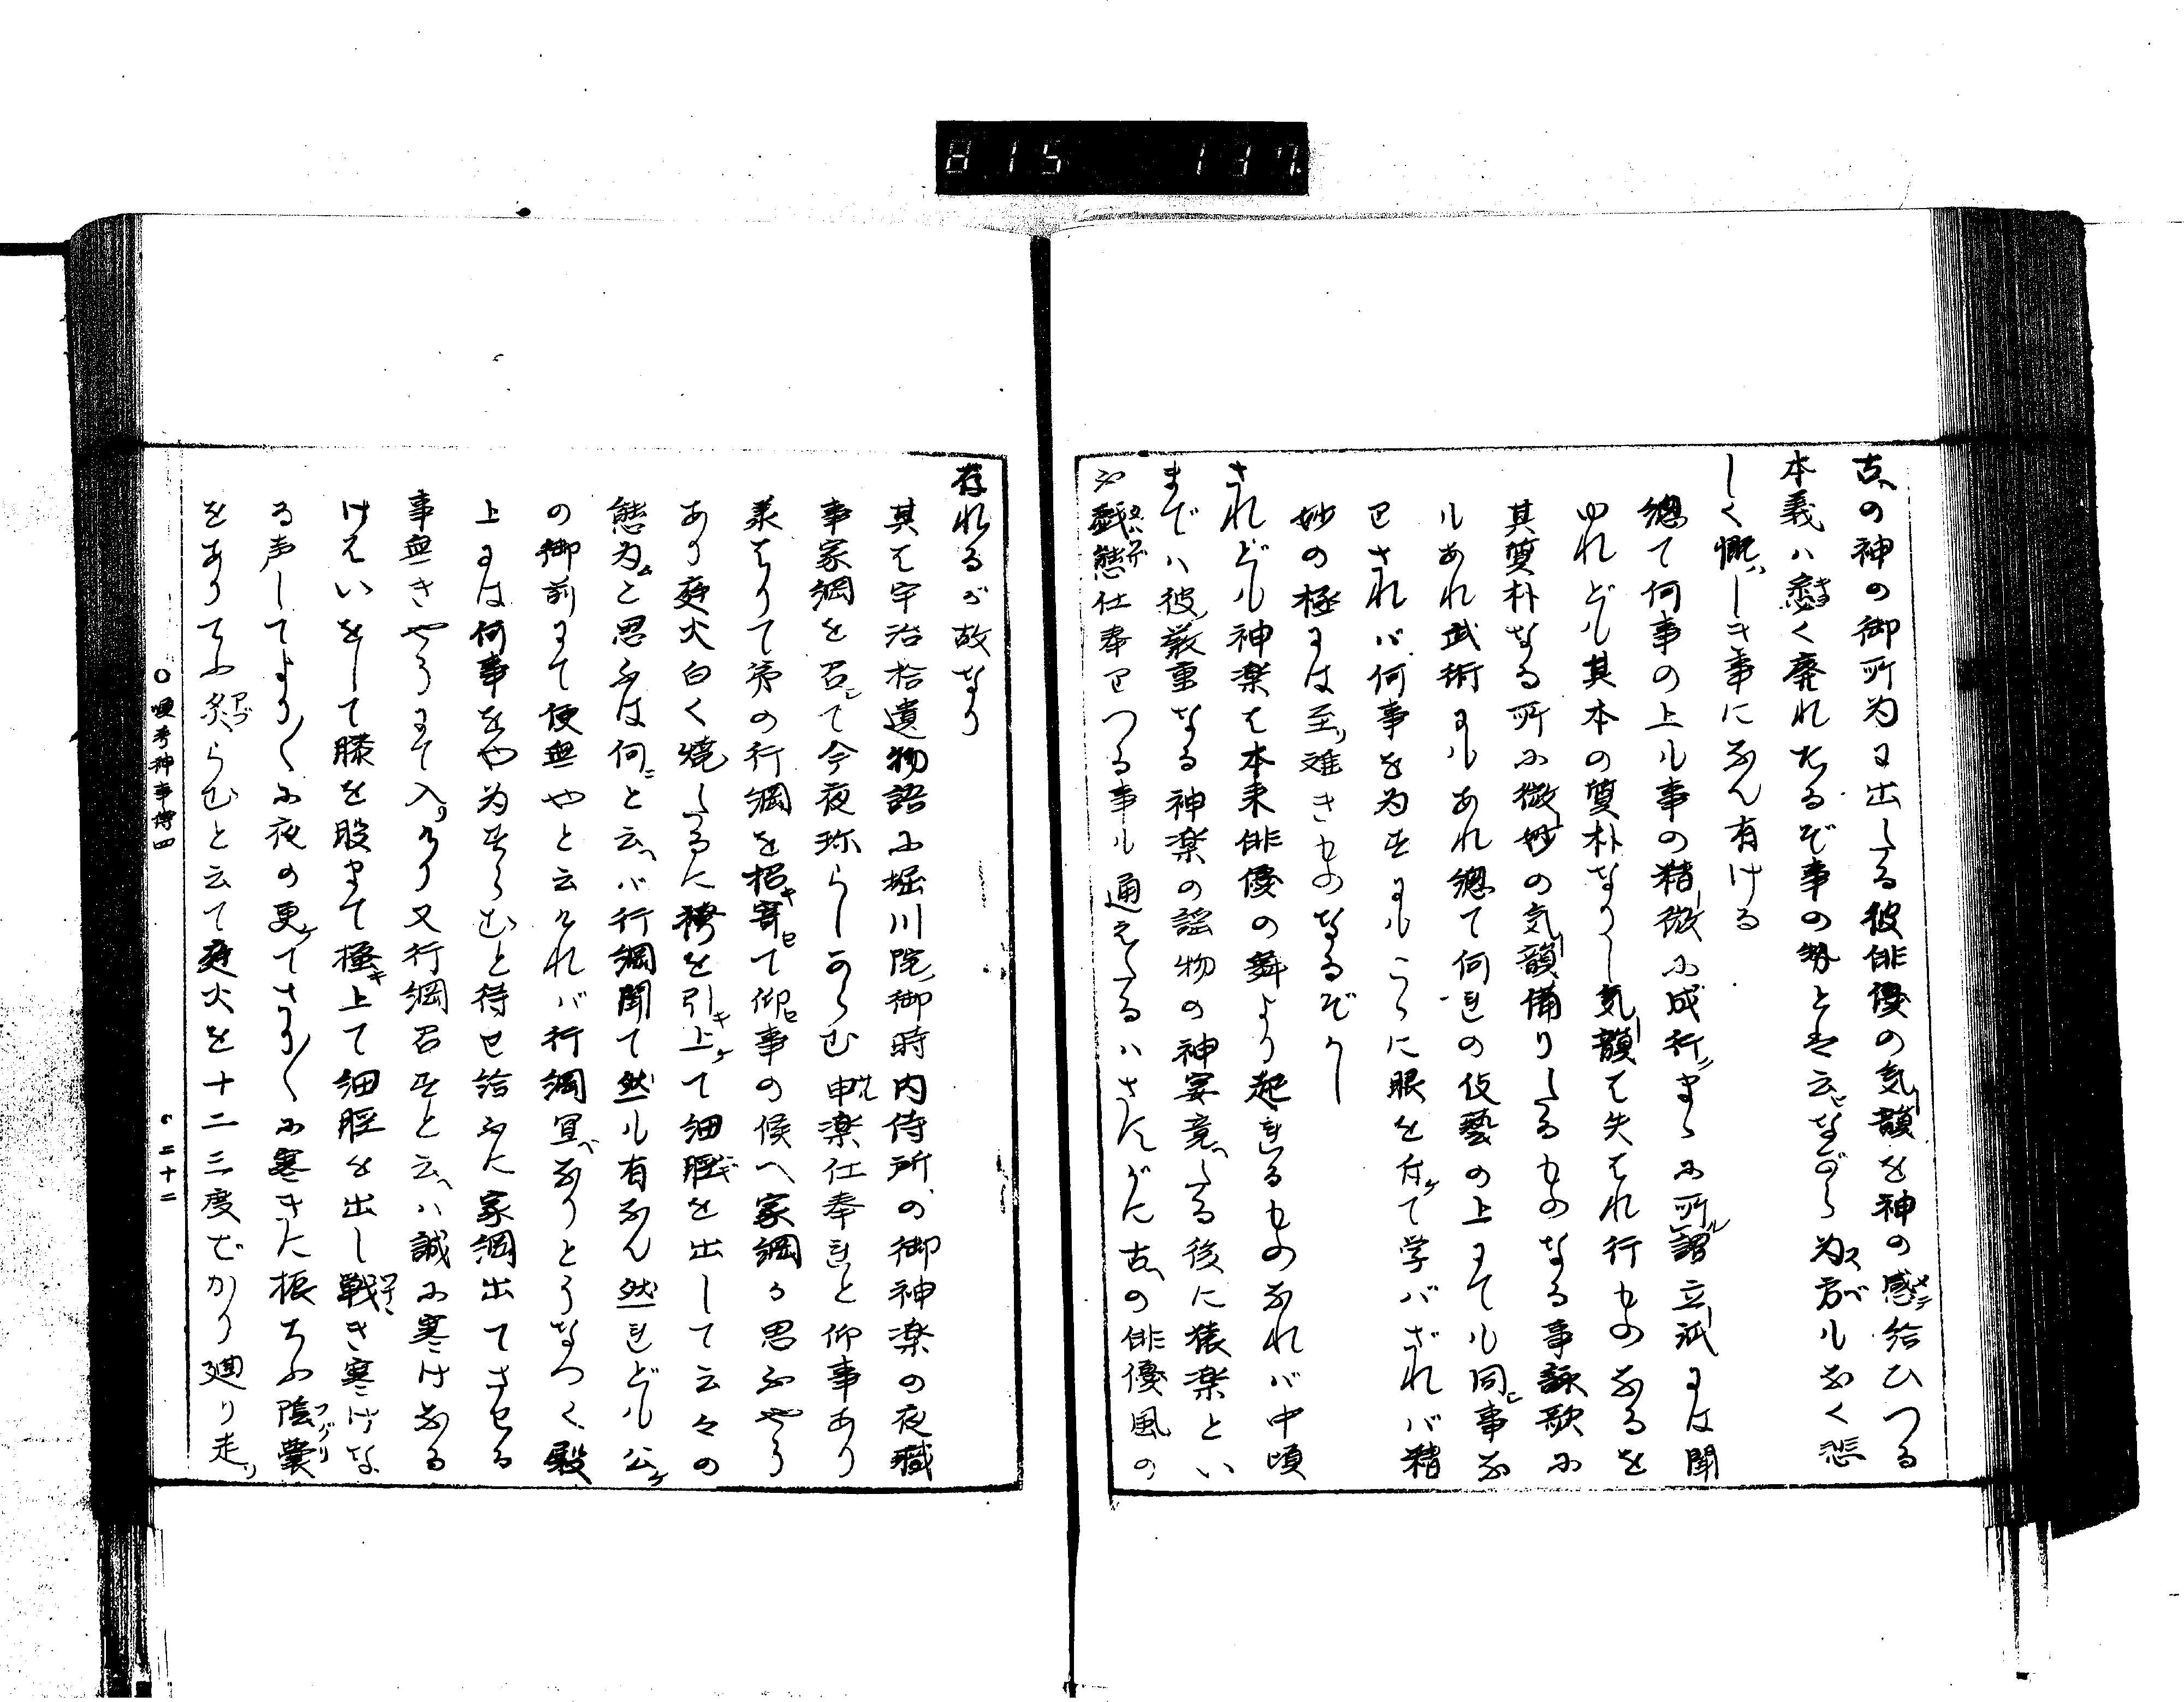 815 137
古の神の御所為に出たる彼俳優の気韻を神の感給ひつる
本義ハ悉く廃れたるぞ事の勢とは云ながら為方ルなく悲
しく慨しき事になん有ける
総て何事の上ル事の精微に成行まゝに所謂立派には聞
ゆれどル其本の質朴なりし気韻は失はれ行ものなるを
其質朴なる所に微妙の気韻備りたるものなる事詠歌に
ルあれ武術にルあれ総て何をの伎藝の上にてル同事な
ヮされバ何事を為すにルこゝに眼を付て学バざれバ精
妙の極には至難きものなるぞかし
されどル神楽は本来俳優の舞より起れるものなれバ中頃
までハ彼厳重なる神楽の謡物の神宴竟たる後に猿楽とい
ふ戯態仕奉ヮつる事ル通えたるハさすがに古の俳優風の
存れるが故なり
其は宇治拾遺物語に堀川院御時内侍所の御神楽の夜職
事家綱を召て今夜珍らしからむ申楽仕奉れと仰事あり
承はりて弟の行綱を招寄て仰事の候へ家綱が思ふやう
あり庭火白く焼たるに袴を引上て細脛を出して云々の
態為と思ふは何と云バ行綱聞て然ル有なん然れどル公
の御前にて便無やと云けれバ行綱宜なりとうなつく殿
上には何事をや為すらむと待せ給ふに家綱出てさせる
事無きやうにて入けり又行綱召すと云ハ誠に寒けなる
けはいをして膝を股まて掻上て細脛を出し戦き寒けな
る声してより〱に夜の更てさり〱に寒きに振ちふ陰嚢
をありちふ炙らむと云て庭火を十二三度ばかり廻り走
神事傳四
二十二